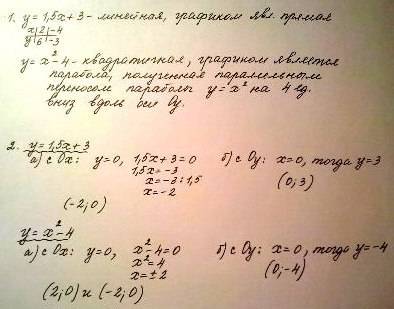 1. y = 1,5x + 3 - линейная, графиком явл. прямая
x | 2 | -4
y | 6 | -3
y = x² - 4 - квадратичная, графиком является
парабола, полученная паралельным
переносом параболы y = x² на 4 ед.
вниз вдоль оси Oy.
2. y = 1,5x + 3
а) с Ox: y = 0, 1,5x + 3 = 0
1,5x = -3
x = -3 : 1,5
x = -2
(-2; 0)
б) с Oy: x = 0, тогда y = 3
(0; 3)
y = x² - 4
а) с Ox: y = 0, x² - 4 = 0
x² = 4
x = ± 2
(2; 0) и (-2; 0)
б) с Oy: x = 0, тогда y = -4
(0; -4)